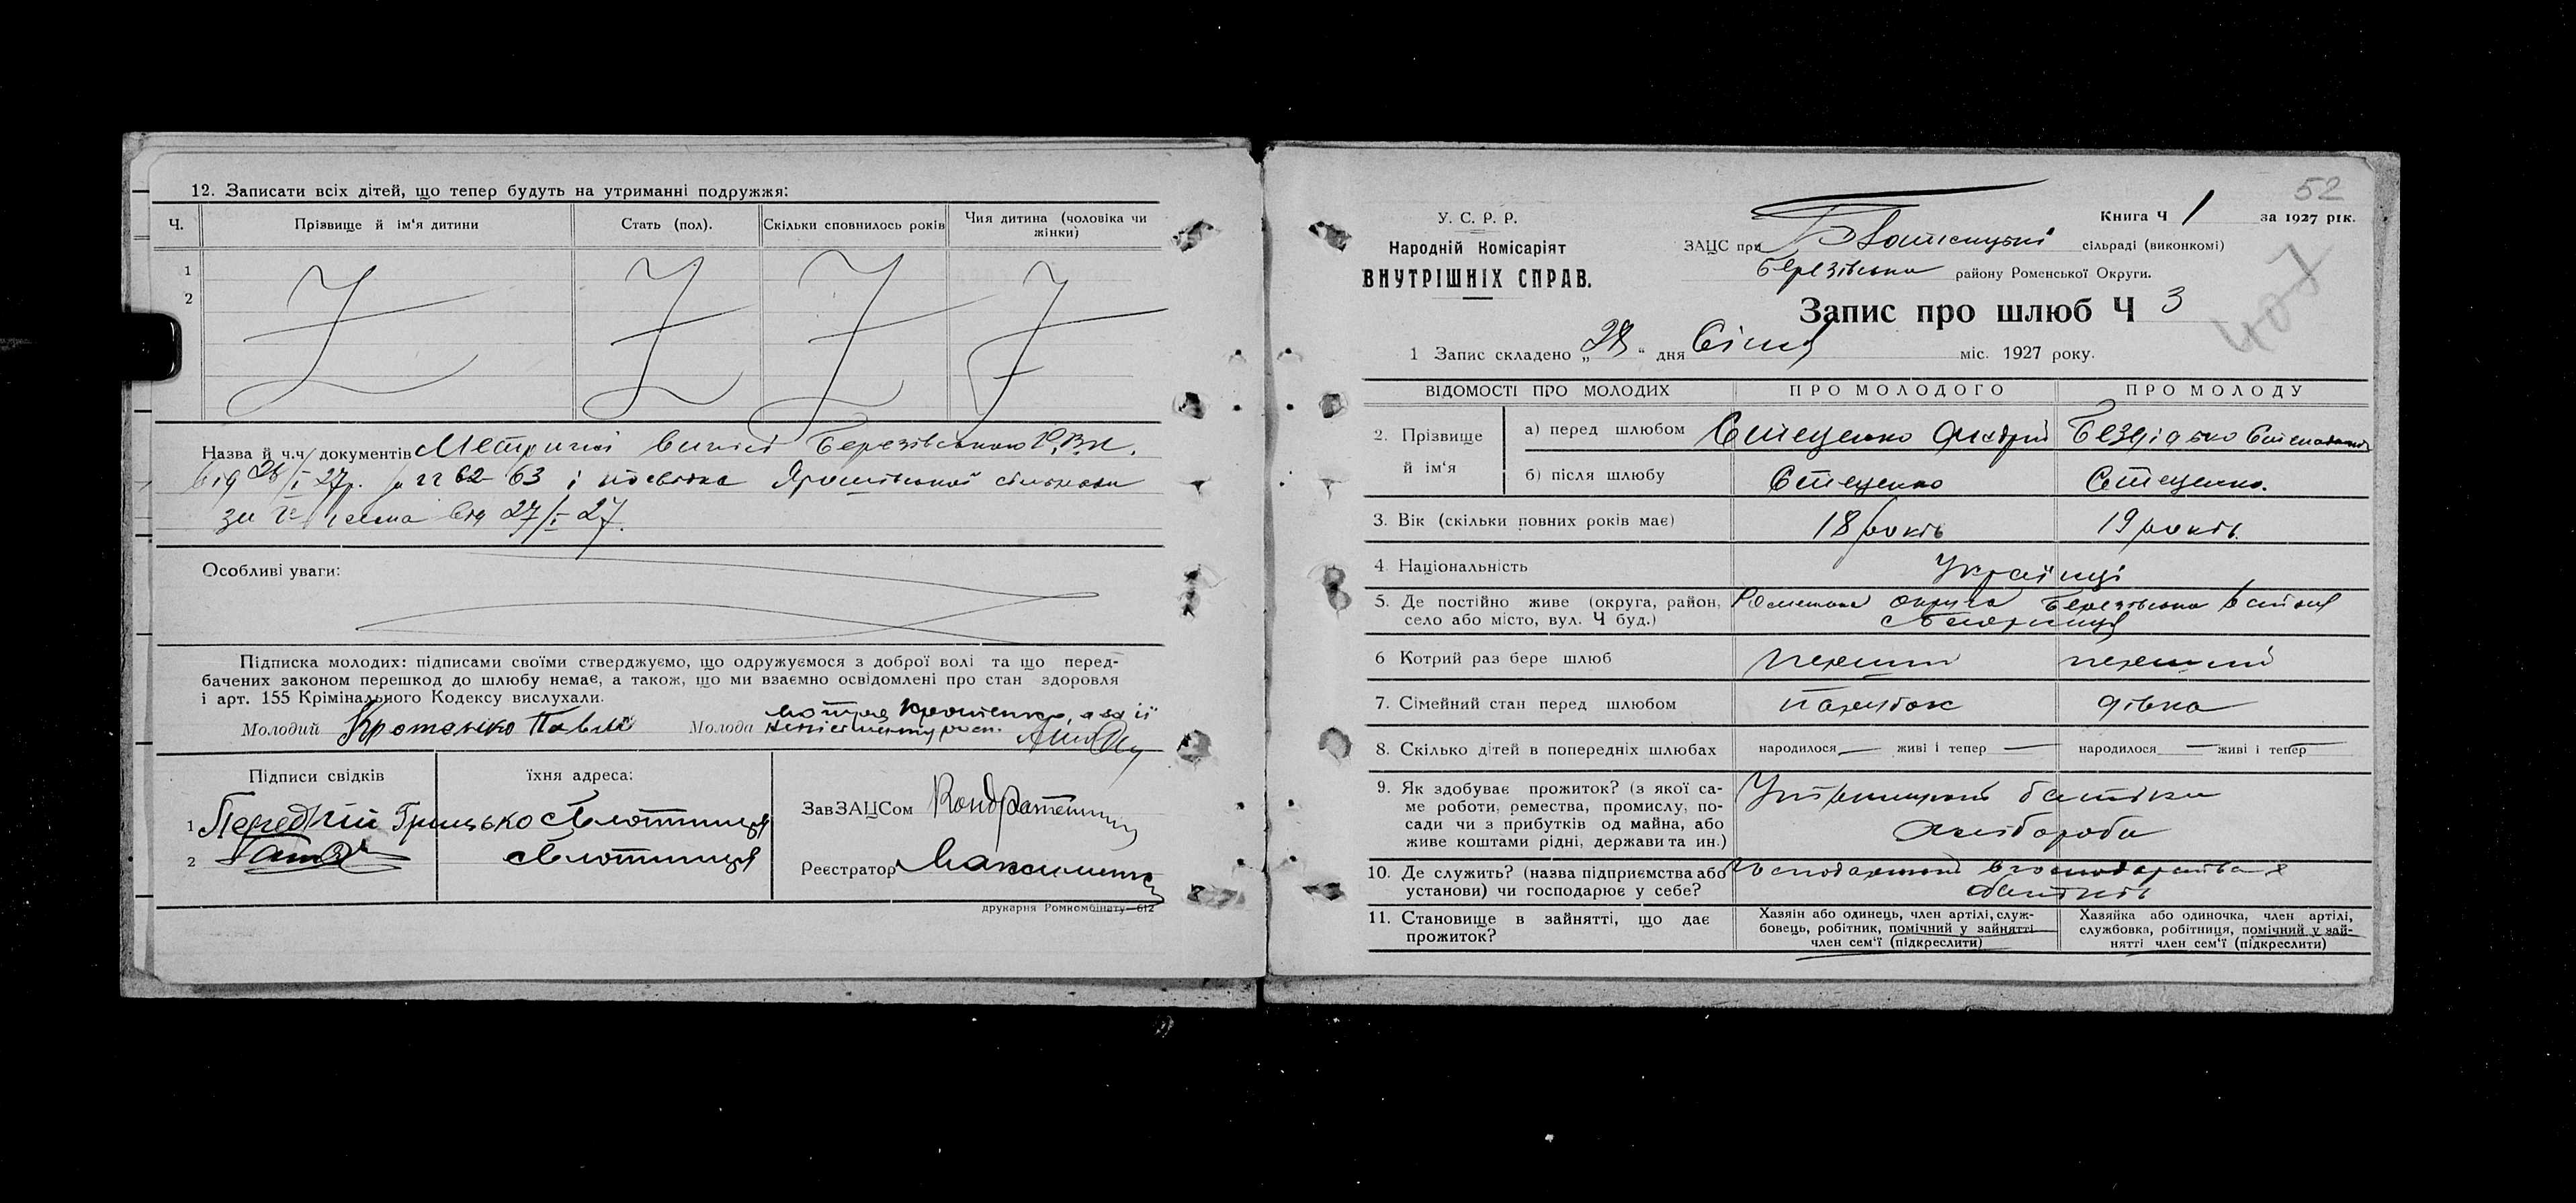 12. Записати всіх дітей, що тепер будуть на утриманні подружжя:
Ч.
Прізвище й ім'я дитини
Стать (пол).
Скільки сповнилось років
Чия дитина (чоловіка чи
жінки)
1
2
Назва й ч.ч. документів Метричні виписі Березівського Р.В.К.
від 28/I 27р. 62-63 і посвідка Ярошівської сільради
за від 27/I 27.
Особливі уваги:
Підписка молодих: підписами своїми стверджуємо, що одружуємося з доброї волі та що перед-
бачених законом перешкод до шлюбу немає, а також, що ми взаємно освідомлені про стан здоровля
і арт. 155 Крімінального Кодексу вислухали.
Молодий Кротенко Павло Молода Мотря Кротенко, а за її
неписьменну росп.
Підписи свідків
їхня адреса:
1 Передрій Грицько Слотниця
2 Слотниця
ЗавЗАЦСом
Реєстратор Максименко
друкарня Ромкомбінату—612
52
У. С. Р. Р.
Народній Комісаріят
ВНУТРІШНІХ СПРАВ.
Книга Ч 1 за 1927 рік.
ЗАЦС при сільраді (виконкомі)
Березівського району Роменської Округи.
407
Запис про шлюб Ч 3
1 Запис складено „28“ дня Січня міс. 1927 року.
ВІДОМОСТІ ПРО МОЛОДИХ
ПРО МОЛОДОГО
ПРО МОЛОДУ
2. Прізвище
й ім'я
а) перед шлюбом Стеценко Андрій Бездідько Степанида
б) після шлюбу Стеценко Стеценко.
3. Вік (скільки повних років має) 18 років 19 років.
4. Національність Українці
5. Де постійно живе (округа, район, Роменська округа Березівський район
село або місто, вул. Ч буд.)
6 Котрий раз бере шлюб перший перший
7. Сімейний стан перед шлюбом парубок дівка
8. Скілько дітей в попередніх шлюбах народилося — живі і тепер — народилося — живі і тепер —
9. Як здобуває прожиток? (з якої са-
ме роботи, ремества, промислу, по-
сади чи з прибутків од майна, або
живе коштами рідні, держави та ин.)
Утриманні батьки
хлібороби
10. Де служить? (назва підприємства або
установи) чи господарює у себе?
в господарствах
батьків
11. Становище в зайнятті, що дає
прожиток?
Хазяін або одинець, член артілі, служ-
бовець, робітник, помічний у зайнятті
член сем'ї (підкреслити)
Хазяйка або одиночка, член артілі,
службовка, робітниця, помічний у зай-
нятті член сем'ї (підкреслити)